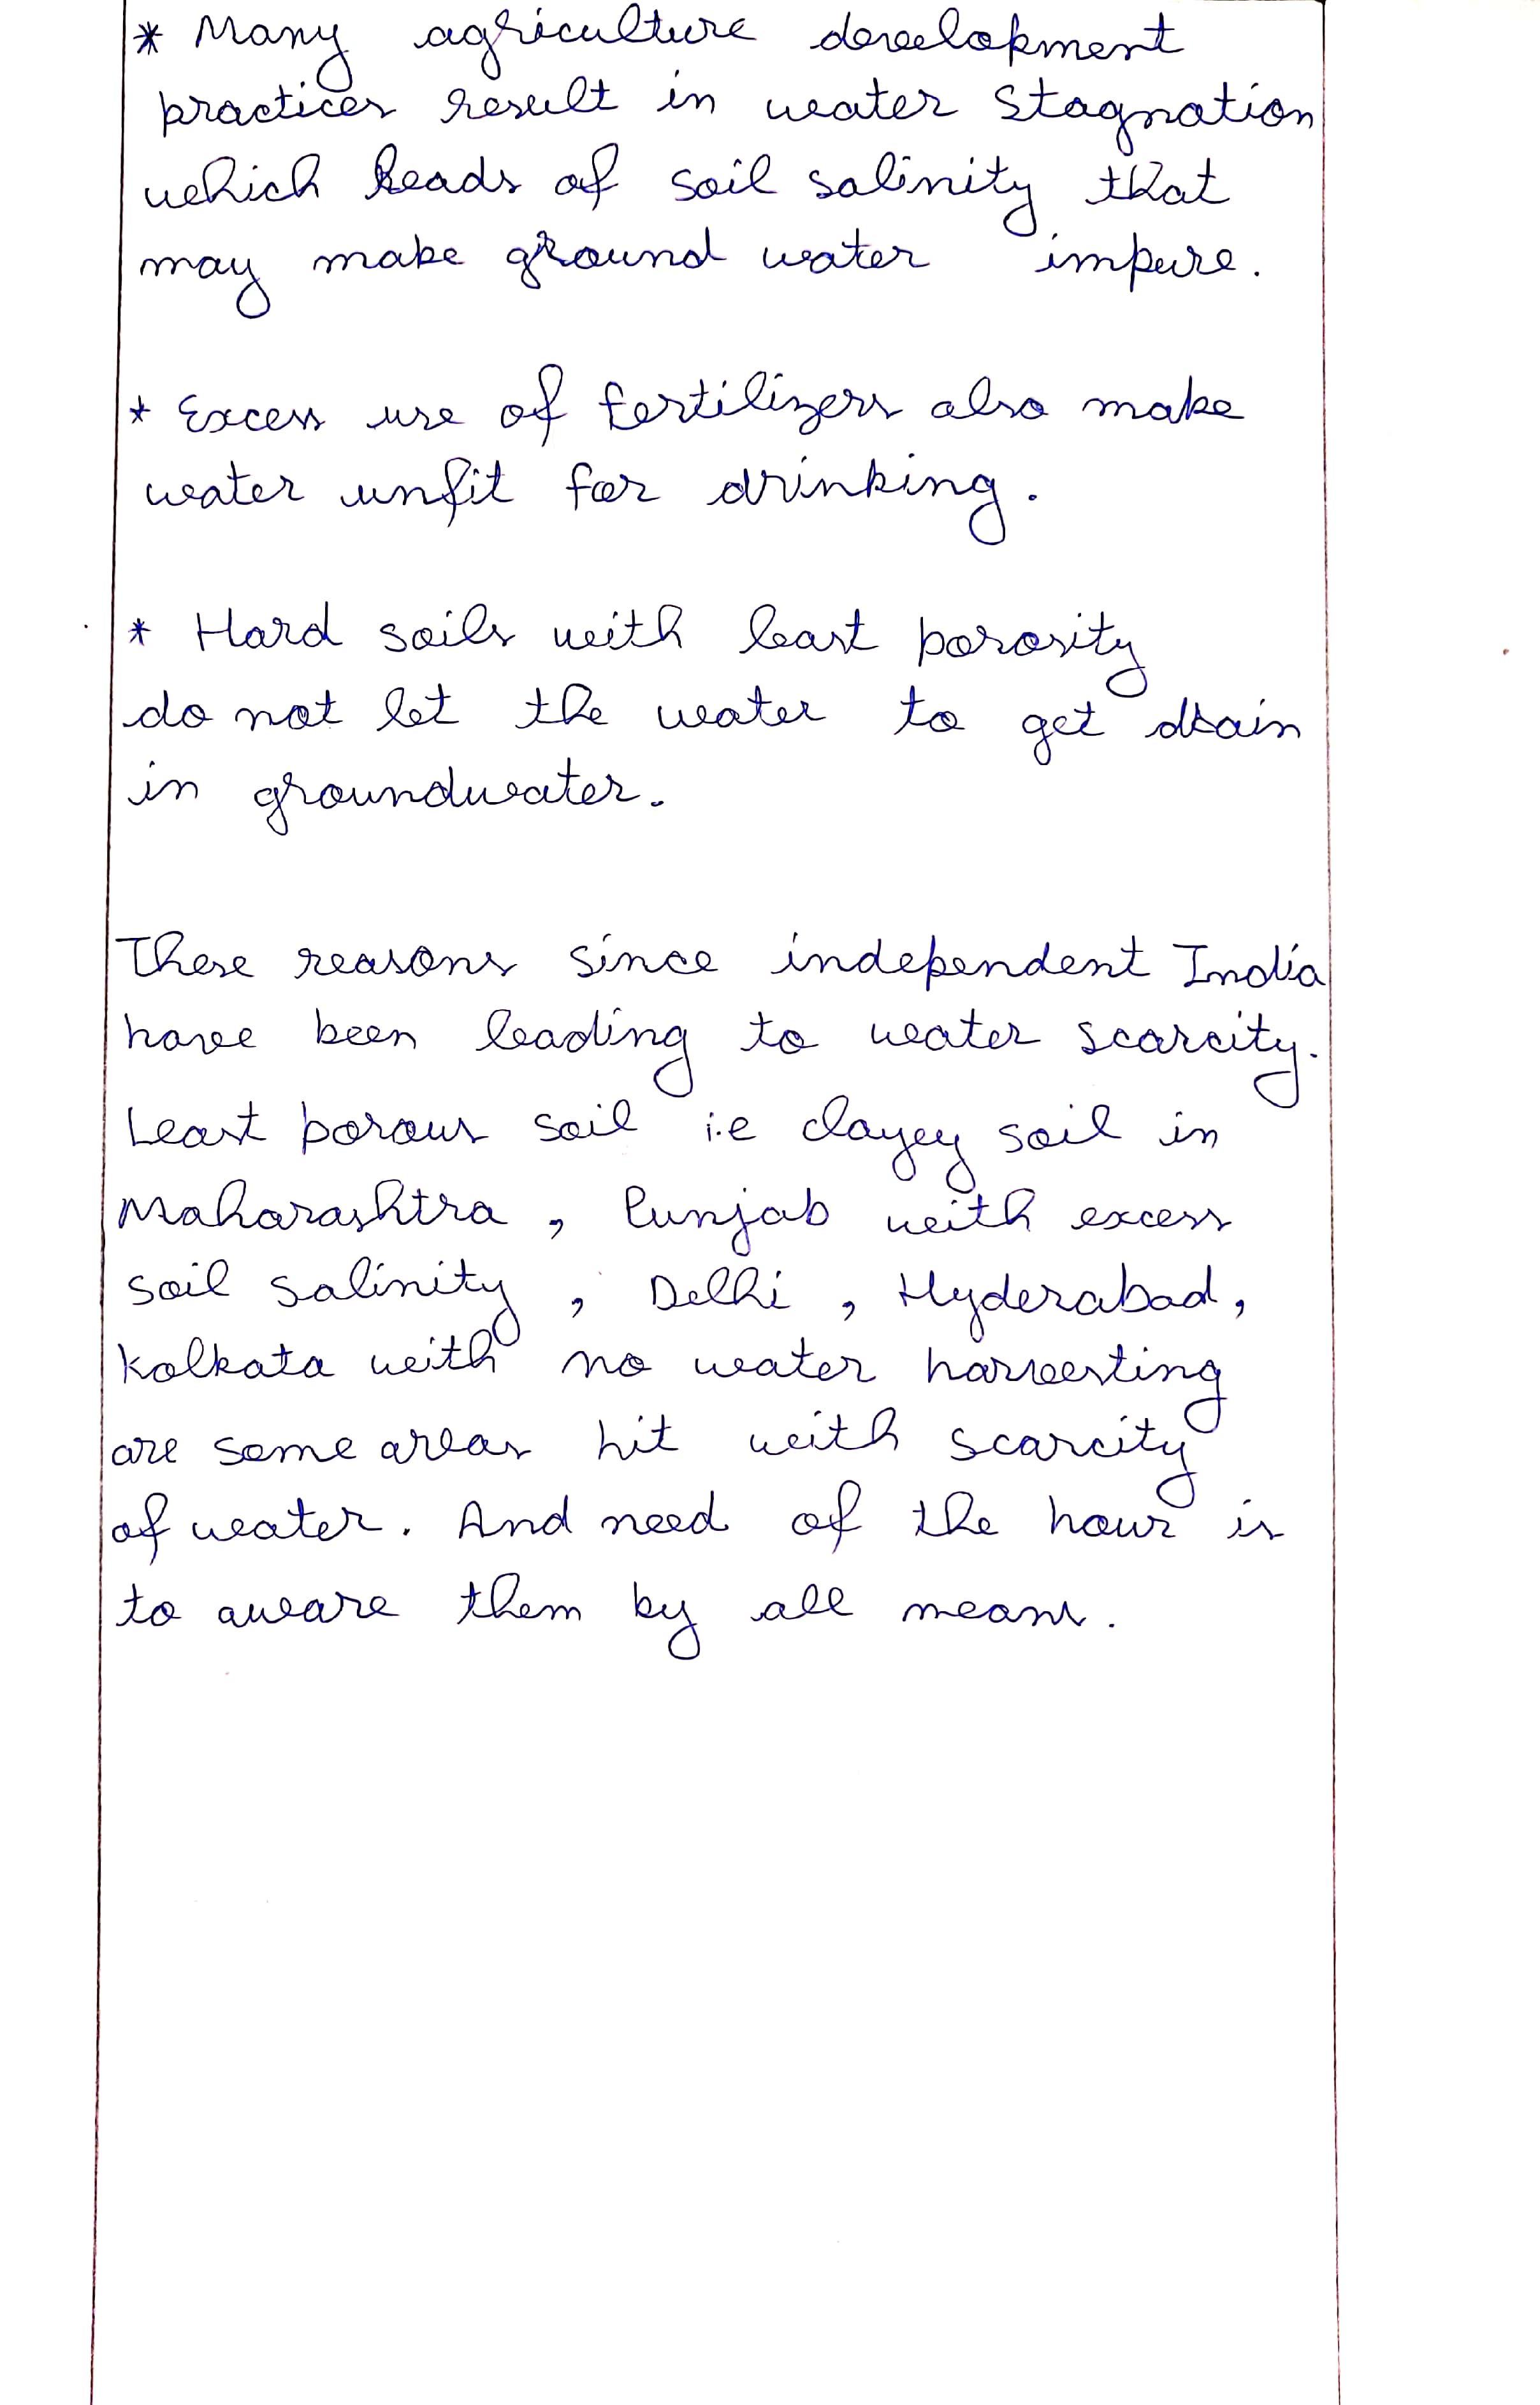 * Many agriculture development
practices result in water stagnation
which leads of soil salinity that
may make ground water impure.
* Excess use of fertilizers also make
water unfit for drinking.
* Hard soils with least porosity
do not let the water to get drain
in groundwater.
These reasons since independent India
have been leading to water scarcity.
Least porous soil i.e clayey soil in
Maharashtra, Punjab with excess
soil salinity, Delhi, Hyderabad,
Kolkata with no water harvesting
are some areas hit with scarcity
of water. And need of the hour is
to aware them by all means.